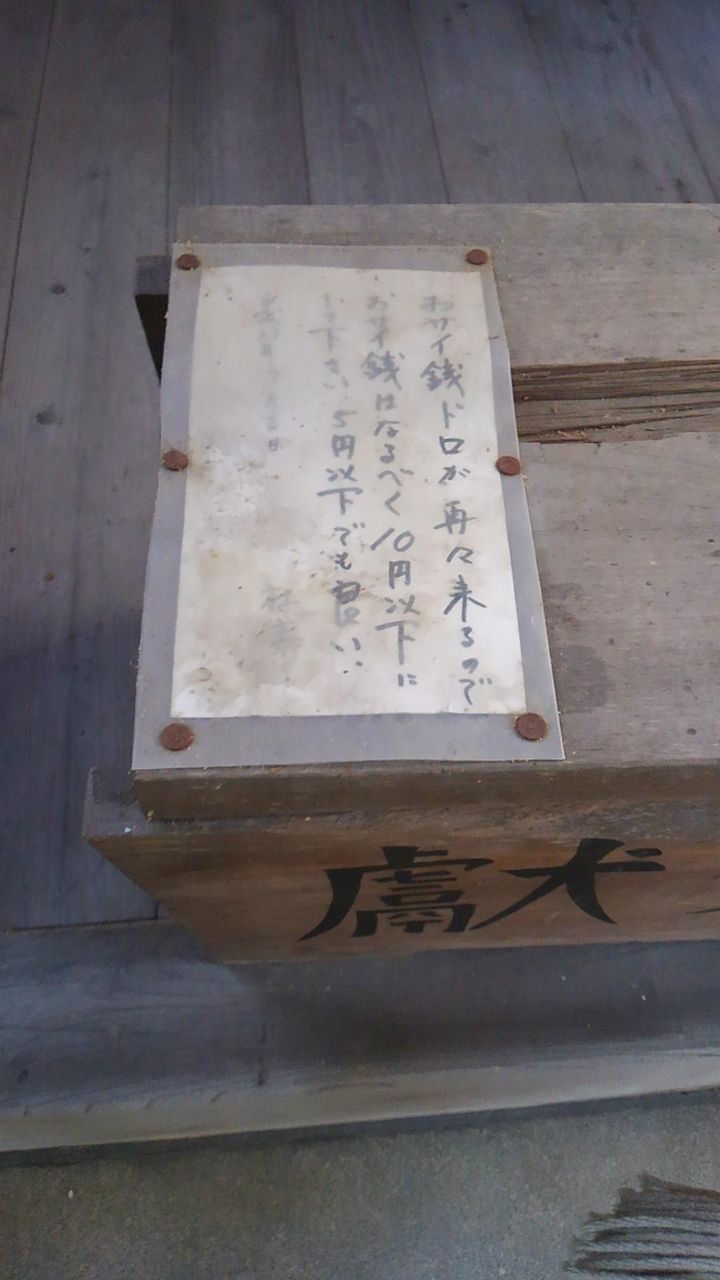 おサイ銭ドロが再々来るので
おサイ銭はなるべく10円以下に
して下さい。5円以下でも良い。
日
社
献